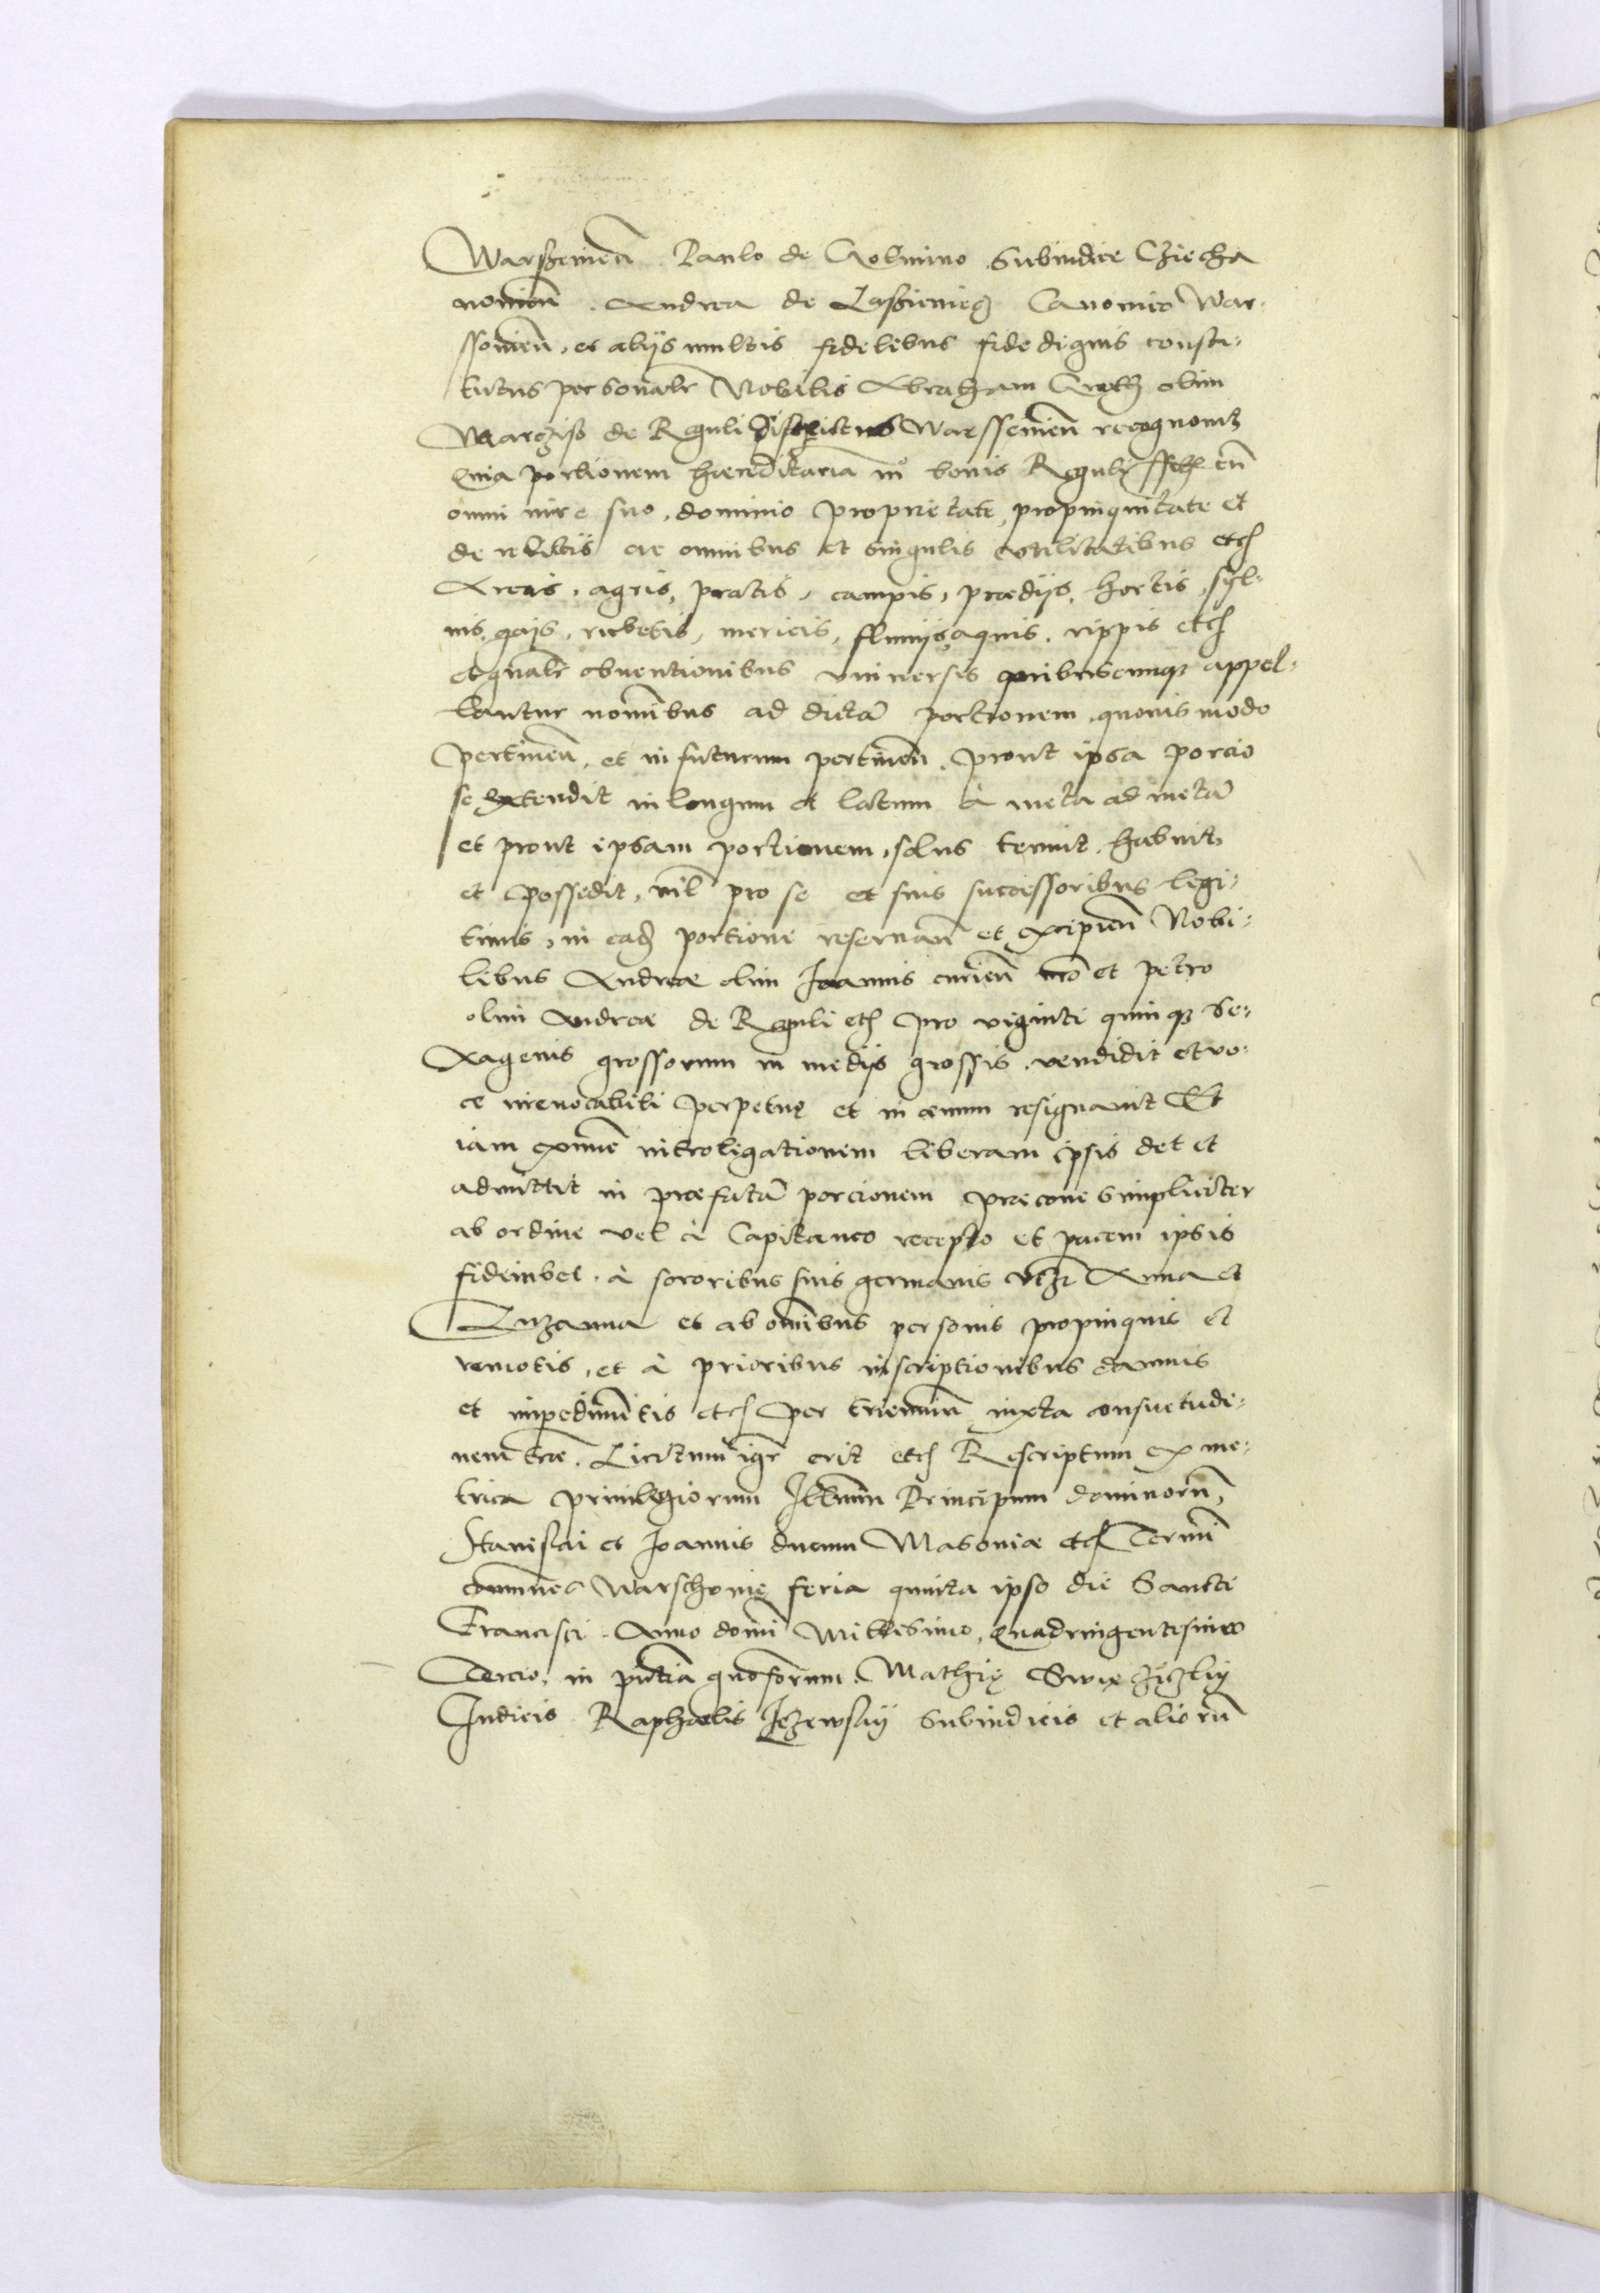 Warsseuien̄. Paulo de Golmino Subiudice Cziecha
nouien̄. Andrea de Lasskieniecz Canonico War-
ssouien̄, et alijs multis fidelibus fide dignis consti-
tutus personalr̄ Nobilis Abraham olim
de Reguli districtus Warsseuien̄ recognouit
Quia portionem hæreditariā in bonis Reguli cū
omni iure suo, dominio proprietate, propinquitate et
de relictis ac omnibus et singulis vtilitatibus etc̄
Areis, agris, pratis, campis, prædijs, hortis, syl-
uis, gais, rubetis, mericis, fluuijs, aquis, rippis etc̄
et gnalr̄ obuentionibus vniuersis quibuscumqꝫ appel-
lantur nomibus ad dictā portionem, quouis modo
pertinen̄, et in futurum pertinen̄, prout ipsa porcio
se extendit in longum et latum à meta ad metā
et prout ipsam portionem, solus tenuit, habuit,
et possedit, nil pro se et suis successoribus legi-
timis, in eadꝫ portione reseruan̄ et excipien̄ Nobi-
libus Andreæ olim Ioannis et Petro
olim Andreæ de Reguli etc̄ pro viginti quinqꝫ se-
xagenis grossorum in medijs grossis, vendidit et vo-
ce irreuocabili perpetuę et in æuum resignauit Et
iam intro­ligationem liberam ipsis det et
admittit in præfatā porcionem præcone simpliciter
ab ordine vel à Capitaneo recepto et pacem ipsis
fideiubet, à sororibus suis germanis vtꝫ Anna et
Zuzanna et ab omibus personis propinquis et
remotis, et à prioribus inscriptionibus damnis
et impedimētis etc̄ per trienniū iuxta consuetudi-
nem træ. Licitum igr̄ erit etc̄ Rescriptum ex me-
trica priuilegiorum Illmm̄ Principum dominorū,
Stanislai et Ioannis ducum Masouiæ etc̄ Termi
Warschouię feria quinta ipso die Sancti
Francisci. Anno domī Millesimo, Quadringentesimo
Tercio, in pn̄tia quoforum, Mathię
Iudicis Raphaelis Iezewsky Subiudicis et aliorū